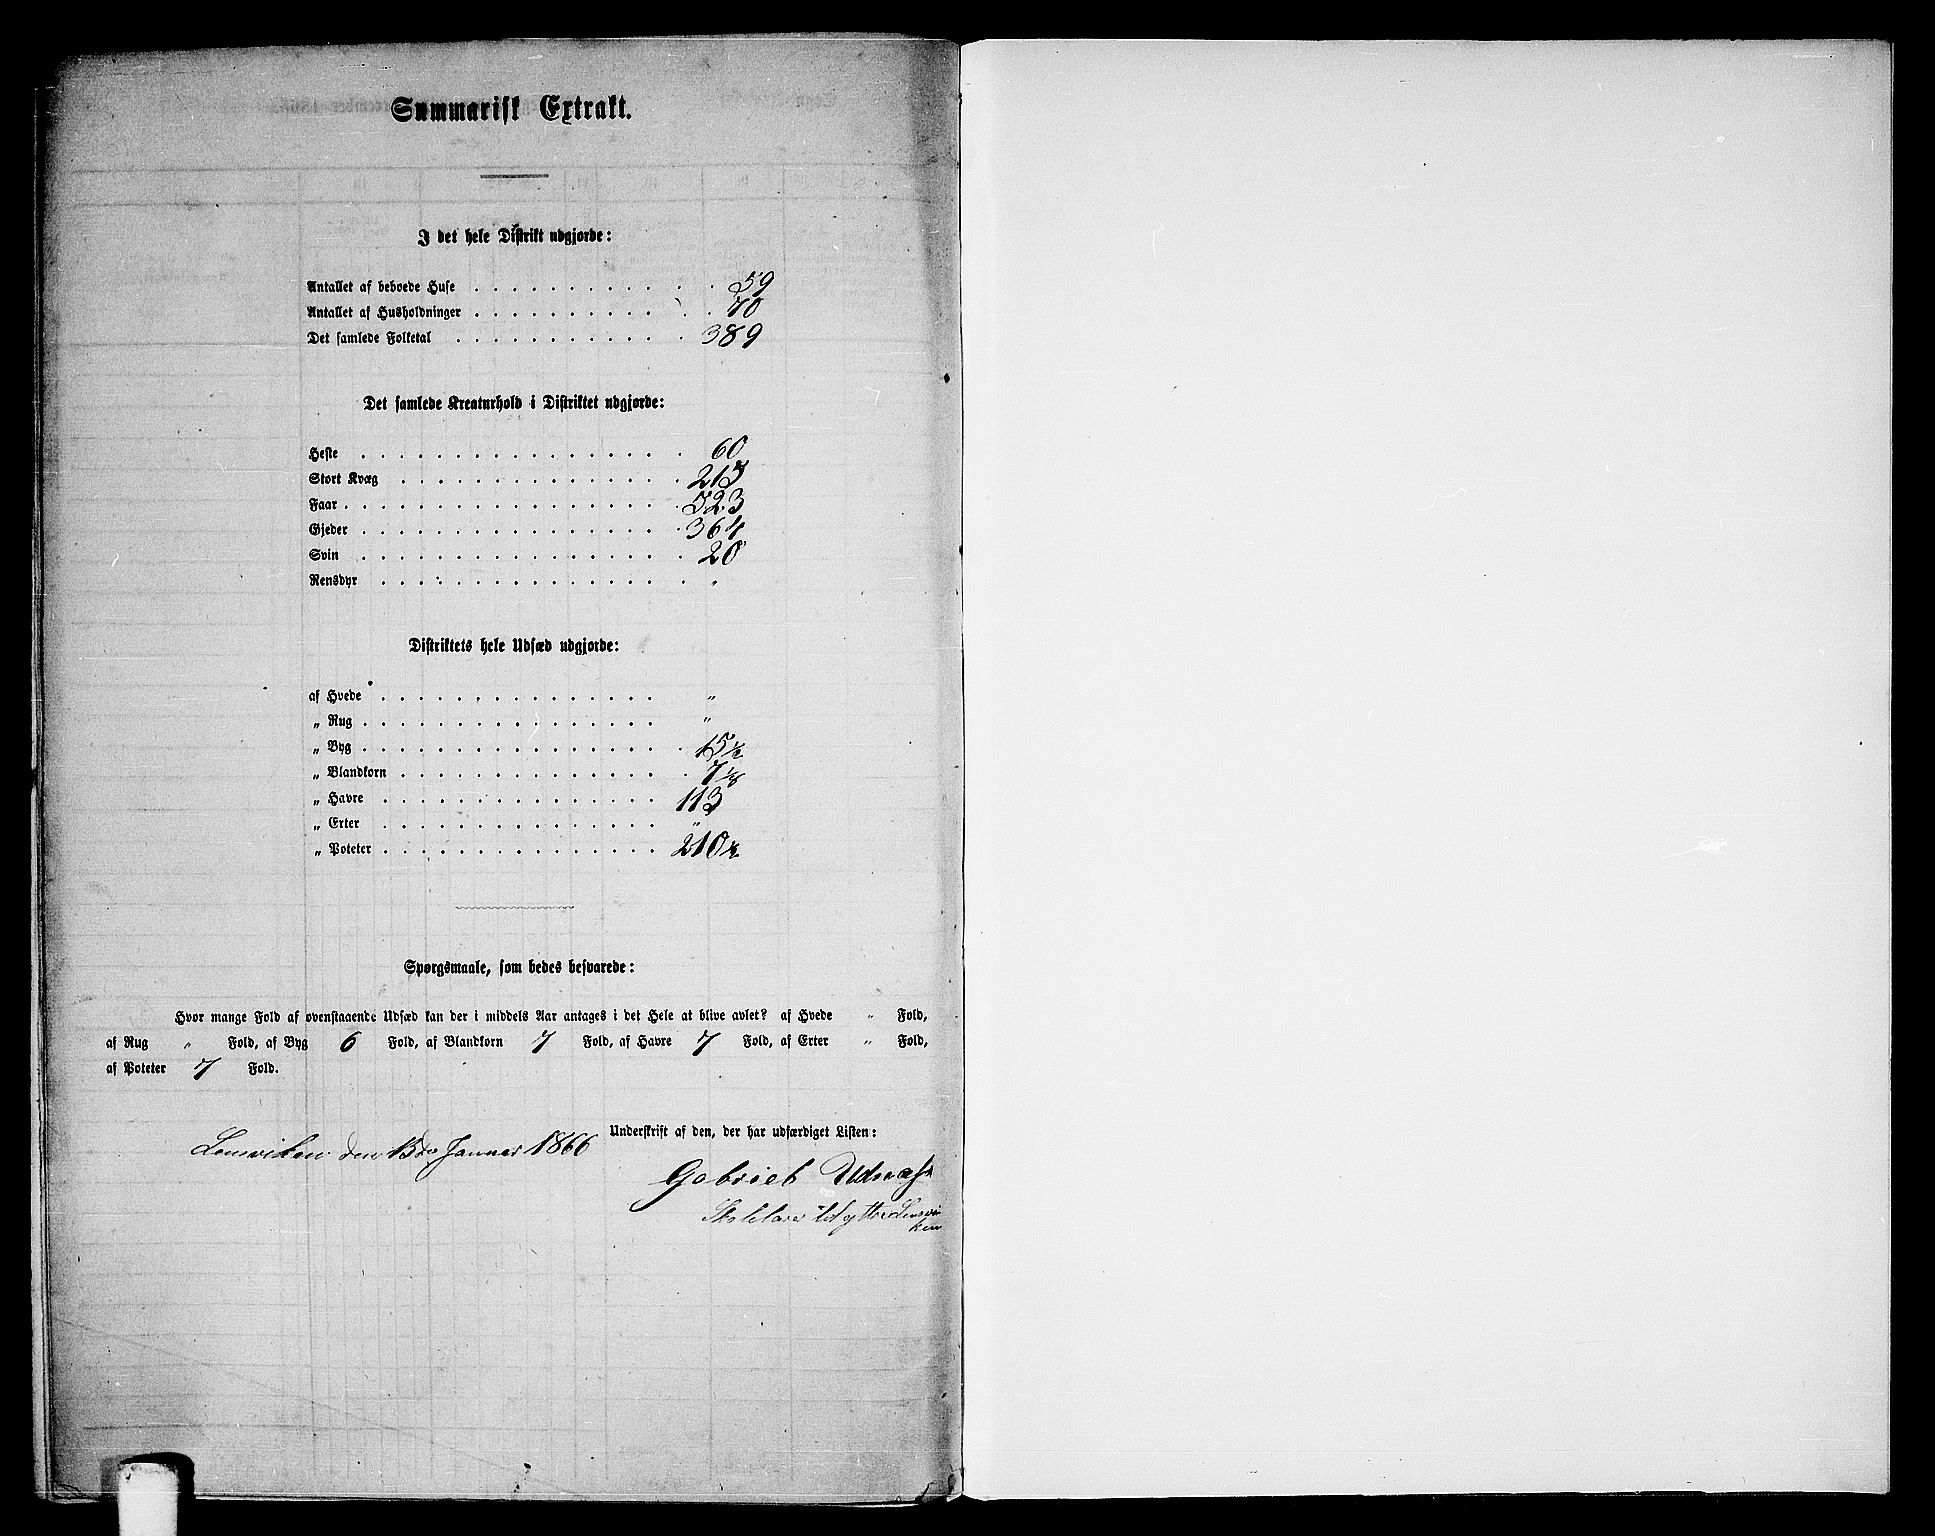 Summarisk Extrakt.
I det hele Distrikt udgjorde:
Antallet af beboede Huse . . . . . . . . . . . . . 59
Antallet af Husholdninger . . . . . . . . . . . . 70
Det samlede Folketal . . . . . . . . . . . . . 389
Det samlede Kreaturhold i Distriktet udgjorde:
Heste . . . . . . . . . . . . . . . . . . 60
Stort Kvæg . . . . . . . . . . . . . . . .
Faar . . . . . . . . . . . . . . . . . . 523
Gjeder . . . . . . . . . . . . . . . . . . 364
Svin . . . . . . . . . . . . . . . . . . 20
Rensdyr . . . . . . . . . . . . . . . . . „
Distriktets hele Udsæd udgjorde:
af Hvede . . . . . . . . . . . . . . . „
„ Rug . . . . . . . . . . . . . . . . „
„ Byg . . . . . . . . . . . . . . . . . . 15 1/2
„ Blandkorn . . . . . . . . . . . . . . . . 7
„ Havre . . . . . . . . . . . . . . . 113
„ Erter . . . . . . . . . . . . . . . „
„ Poteter . . . . . . . . . . . . . . . 210 1/2
Spørgsmaale, som bedes besvarede:
Hvor mange Fold af ovenstaaende Udsæd kan der i middels Aar antages i det Hele at blive avlet? af Hvede „ Fold,
af Rug „ Fold, af Byg 6 Fold, af Blandkorn 7 Fold, af Havre 7 Fold, af Erter „ Fold,
af Poteter 7 Fold.
Underskrift af den, der har udfærdiget Listen:
Lensviken den 15de Januar 1866
Gabriel
Skolelærer i det yttre Lensvi-
ken